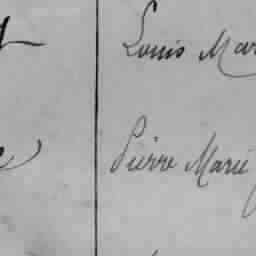 Louis Mar
Pierre Marie